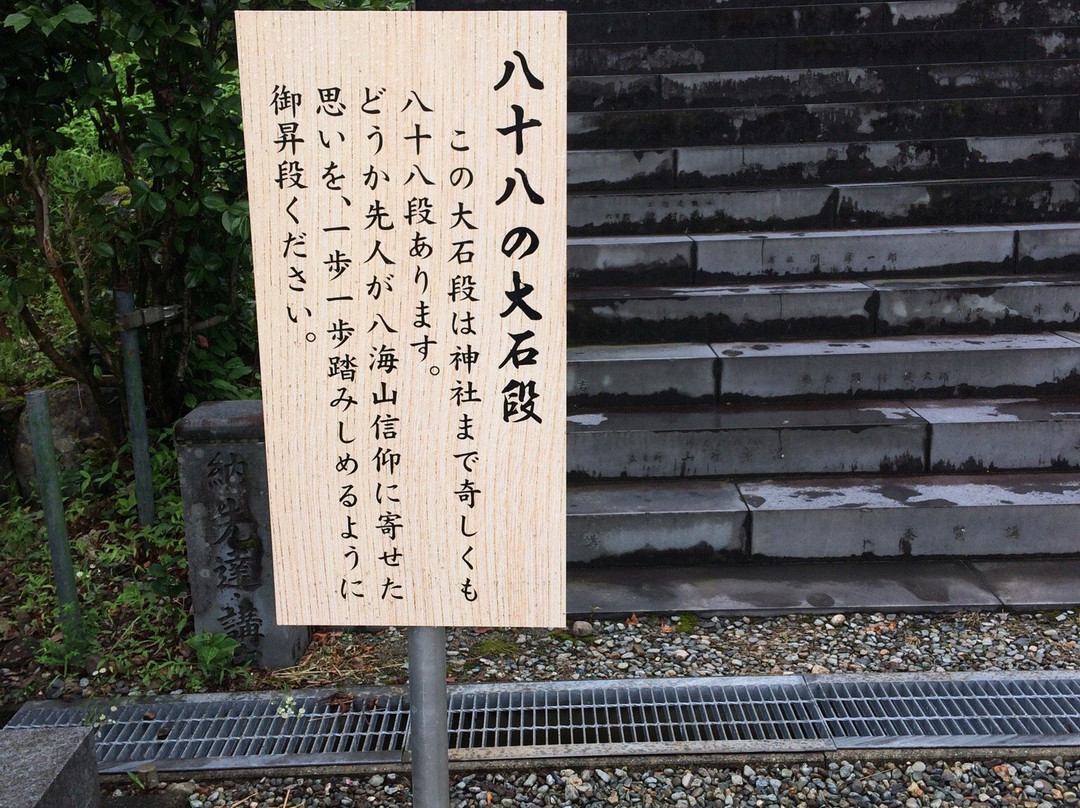 八十八の大石段
この大石段は神社まで奇しくも
八十八段あります。
どうか先人が八海山信仰に寄せた
思いを、一歩一歩踏みしめるように
御昇段ください。
納
先達講